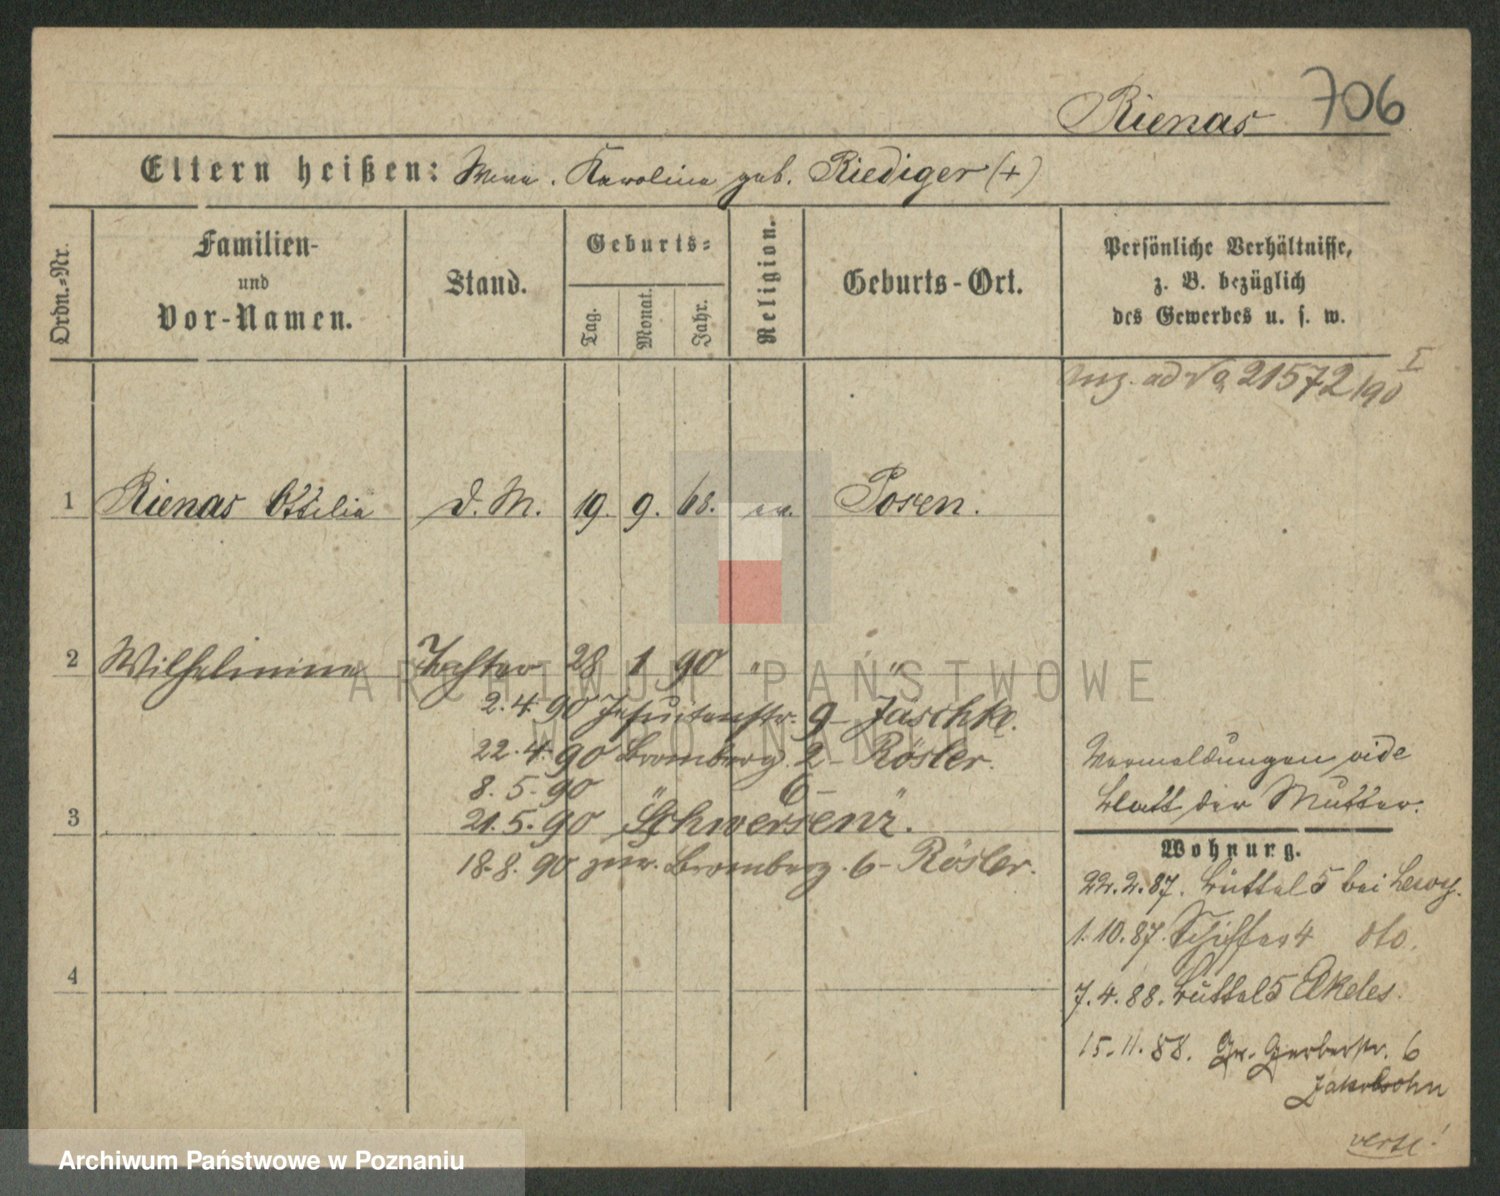 Rienas 706
Eltern heißen: Karolina geb. Riediger (+)
Ordn.-Nr.
Familien-
und
Vor-Namen.
Stand.
Geburts-
Tag.
Monat.
Jahr.
Religion.
Geburts-Ort.
Persönliche Verhältnisse,
z. B. bezüglich
des Gewerbes u. s. w.
ad No 21572/90 I
1 Rienas Ottilie d. M. 19. 9. 68. ev. Posen.
2 Wilhelmine Tochter 28 1 90 " "
ARCHIWUM PAŃSTWOWE
W POZNANIU
2.4.90 Jesuitenstr. 9 Jaschke.
22.4.90 Bromberg. 2 Rösler.
8.5.90 " 6 "
3 21.5.90 Schwersenz.
18.8.90 zur. Bromberg. 6 Rösler.
4
Vermeldungen vide
Blatt der Mutter.
Wohnung.
22.2.87. Büttel 5 bei Lewy.
1.10.87. Schiffer 4 dto.
7.4.88. Büttel 5 Elkeles.
15.11.88. Gr. Gerberstr. 6
Jakobsohn
verte!
Archiwum Państwowe w Poznaniu